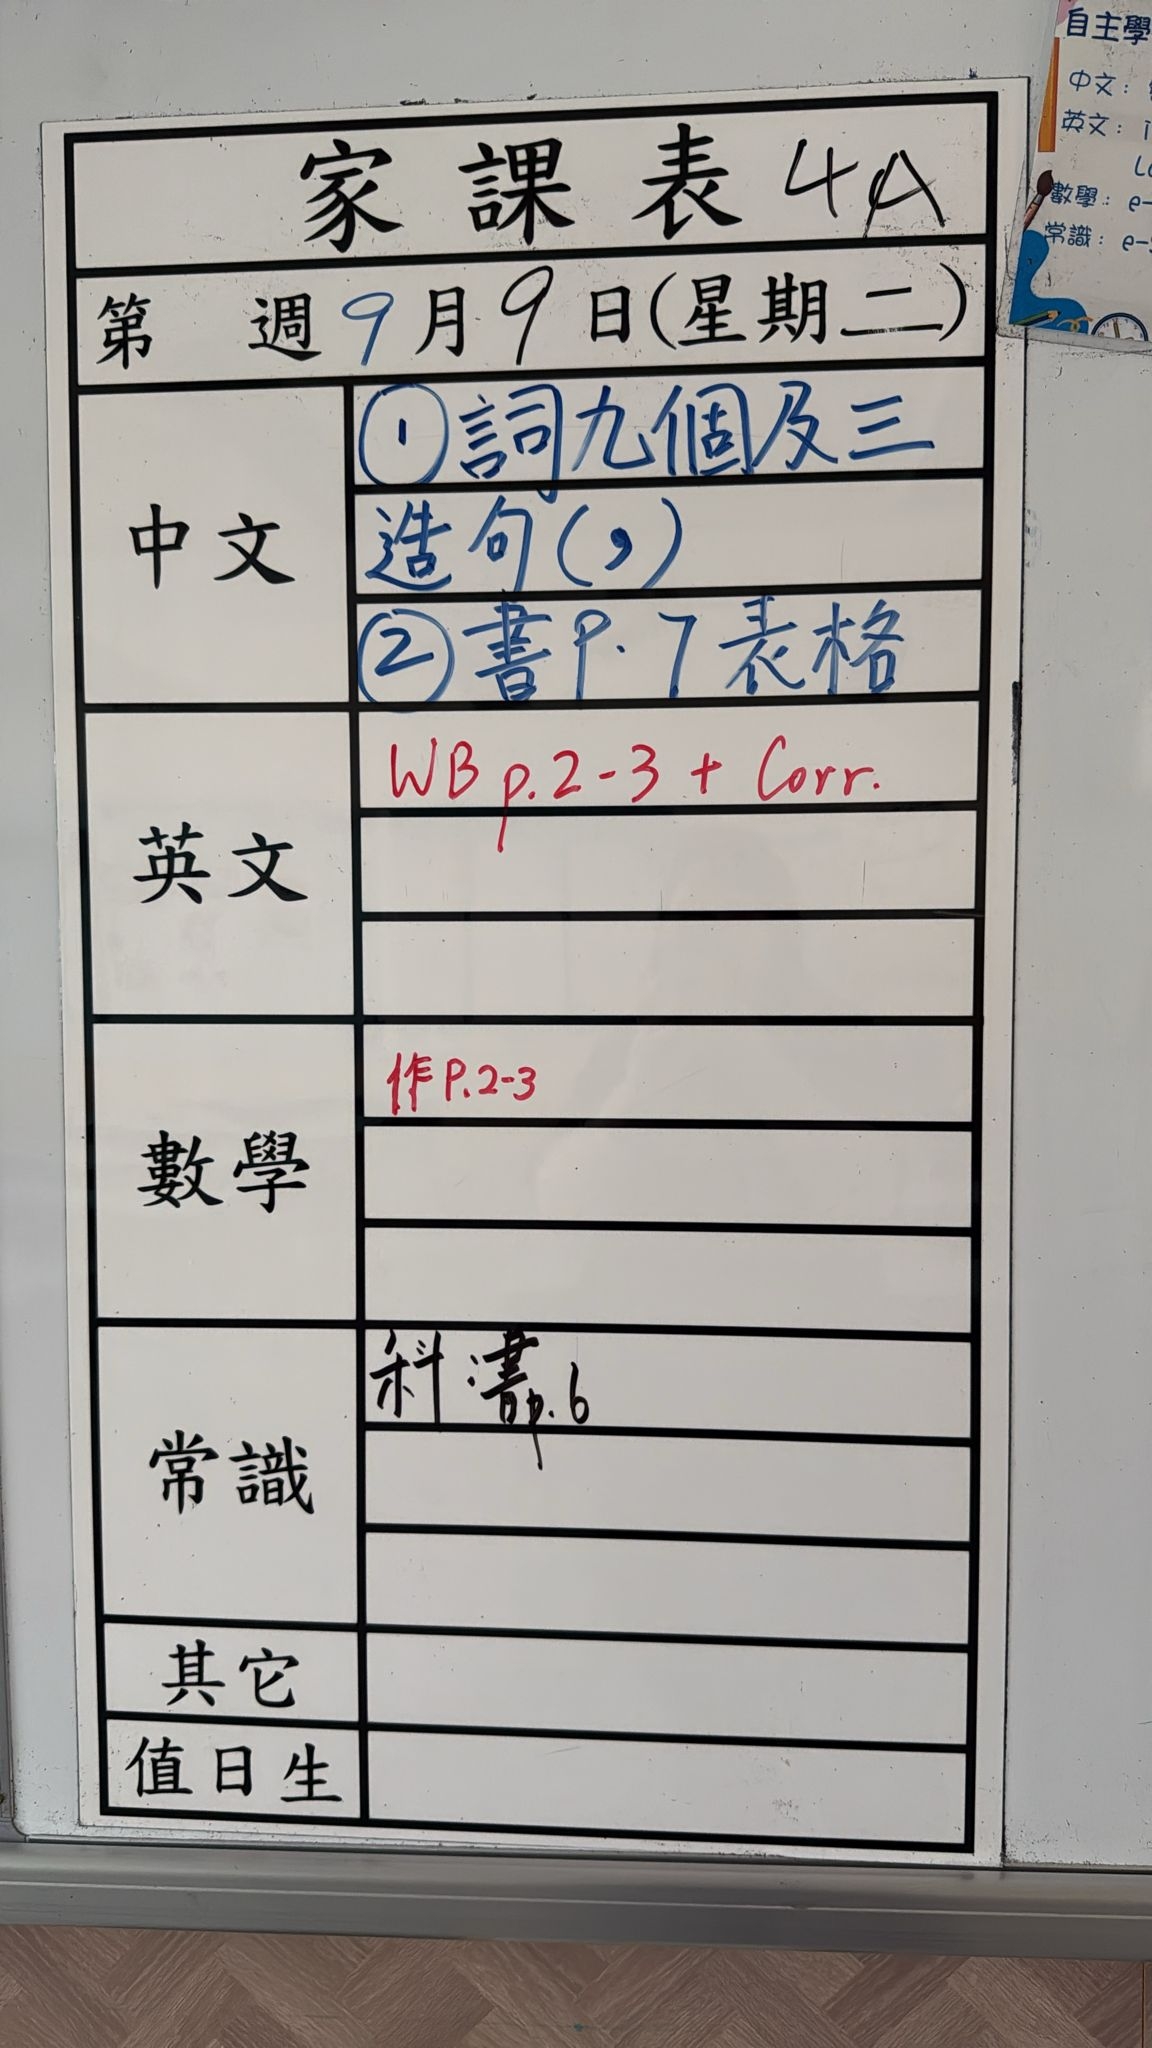 家課表 4A
第 週 9月9日(星期二)
中文
①詞九個及三
造句(,)
②書P.7表格
英文
WB p.2-3 + Corr.
數學
作P.2-3
常識
科書p.6
其它
值日生
自主學
中文：
英文：
數學： e-
常識： e-